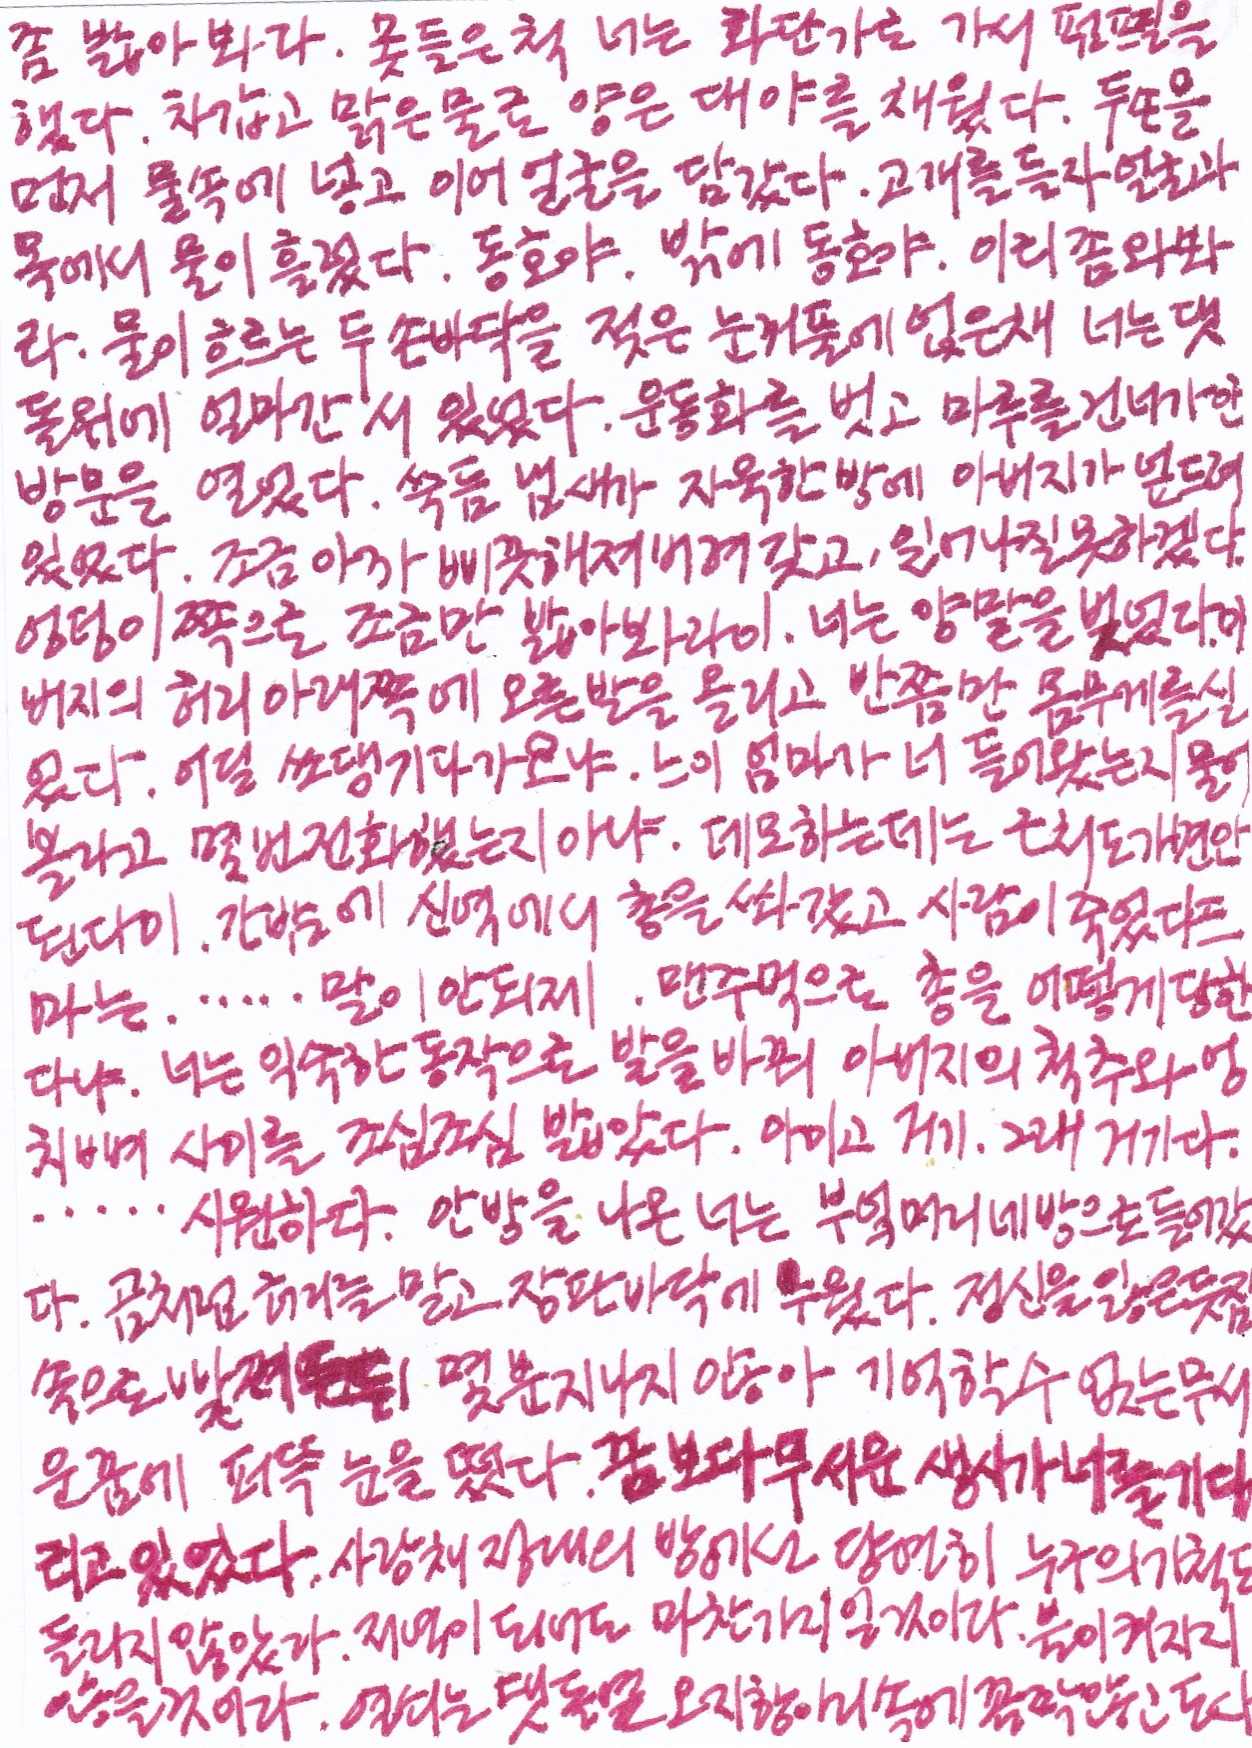 좀 밟아 봐다. 못들은척 너는 화단가로 가서 펌프질을
했다. 차갑고 맑은물로 양은 대야를 채웠다. 두손을
먼저 물속에 넣고 이어 얼굴을 담갔다. 고개를 들자 얼굴과
목에서 물이 흘렀다. 동호야. 밖에 동호야. 이리 좀 와봐
라. 물이 흐르는 두 손바닥을 젖은 눈꺼풀에 얹은채 너는 댓
돌위에 얼마간 서 있었다. 운동화를 벗고 마루를 건너가 안
방문을 열었다. 쑥뜸 냄새가 자욱한 방에 아버지가 엎드려
있었다. 조금 아까 삐끗해져버려 갖고, 일어나질 못하겠다.
엉덩이 쪽으로 조금만 밟아봐라이. 너는 양말을 벗었다. 아
버지의 허리 아래쪽에 오른발을 올리고 반쯤만 몸무게를 실
었다. 어딜 쏘댕기다가 오냐. 느이 엄마가 너 들어왔는지 물어
볼라고 몇번 전화했는지 아냐. 데모하는데는 근처도 가면 안
된다이. 간밤에 신역에서 총을 쏴 갖고 사람이 죽었다드
마는. ..... 말이 안되제. 맨주먹으로 총을 어떻게 당한
다냐. 너는 익숙한 동작으로 발을 바꿔 아버지의 척추와 엉
치뼈 사이를 조심조심 밟았다. 아이고 거기. 그래 거기다.
..... 시원하다. 안방을 나온 너는 부엌머리네방으로 들어갔
다. 곰처럼 허리를 말고 장판바닥에 누웠다. 정신을 잃은듯 잠
속으로 빨려 몇분 지나지 않아 기억할수 없는 무서
운꿈에 퍼뜩 눈을 떴다. 꿈보다 무서운 생시가 너를 기다
리고 있었다. 사랑채 정대의 방에선 당연히 누구의 기척도
들리지 않았다. 저녁이 되어도 마찬가지일 것이다. 불이 켜지지
않을것이다. 열쇠는 댓돌옆 오지항아리 속에 꼼짝않는